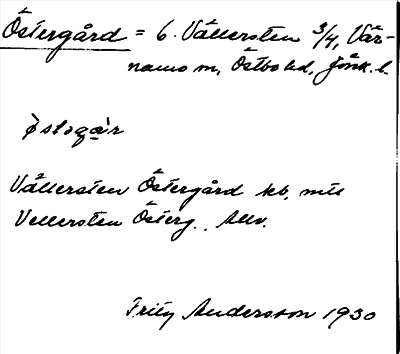 Östergård = 6. Vållersten 3/4, Vär-
namo sn, Östbo hd, Jönk. l.
Vållersten Östergård kb, mtl
Vellersten Österg.
Fritz Andersson 1930